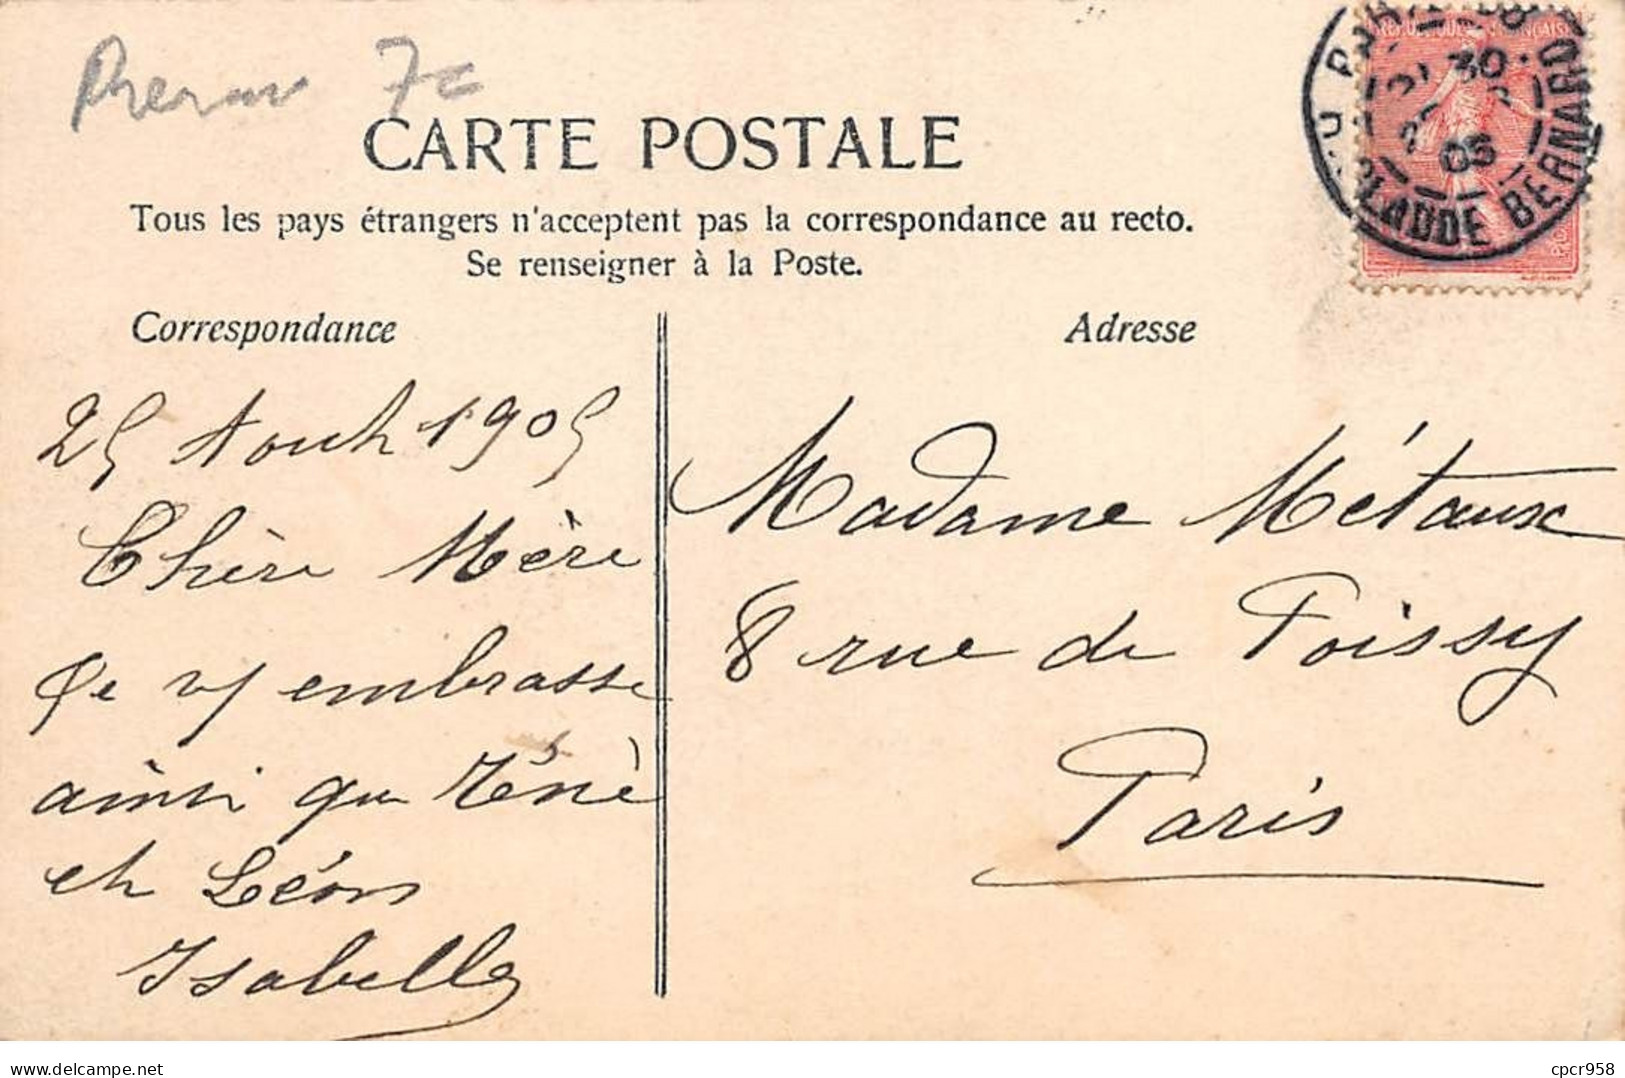 7c
CARTE POSTALE
Tous les pays étrangers n'acceptent pas la correspondance au recto.
Se renseigner à la Poste.
Correspondance
Adresse
25 Août 1905
Chère Mère
Je v/ embrasse
ainsi que Réné
et Léon
Isabelle
Madame Métaux
8 rue de Poissy
Paris
30
05
CLAUDE BERNARD
delcampe.net
cpcr958